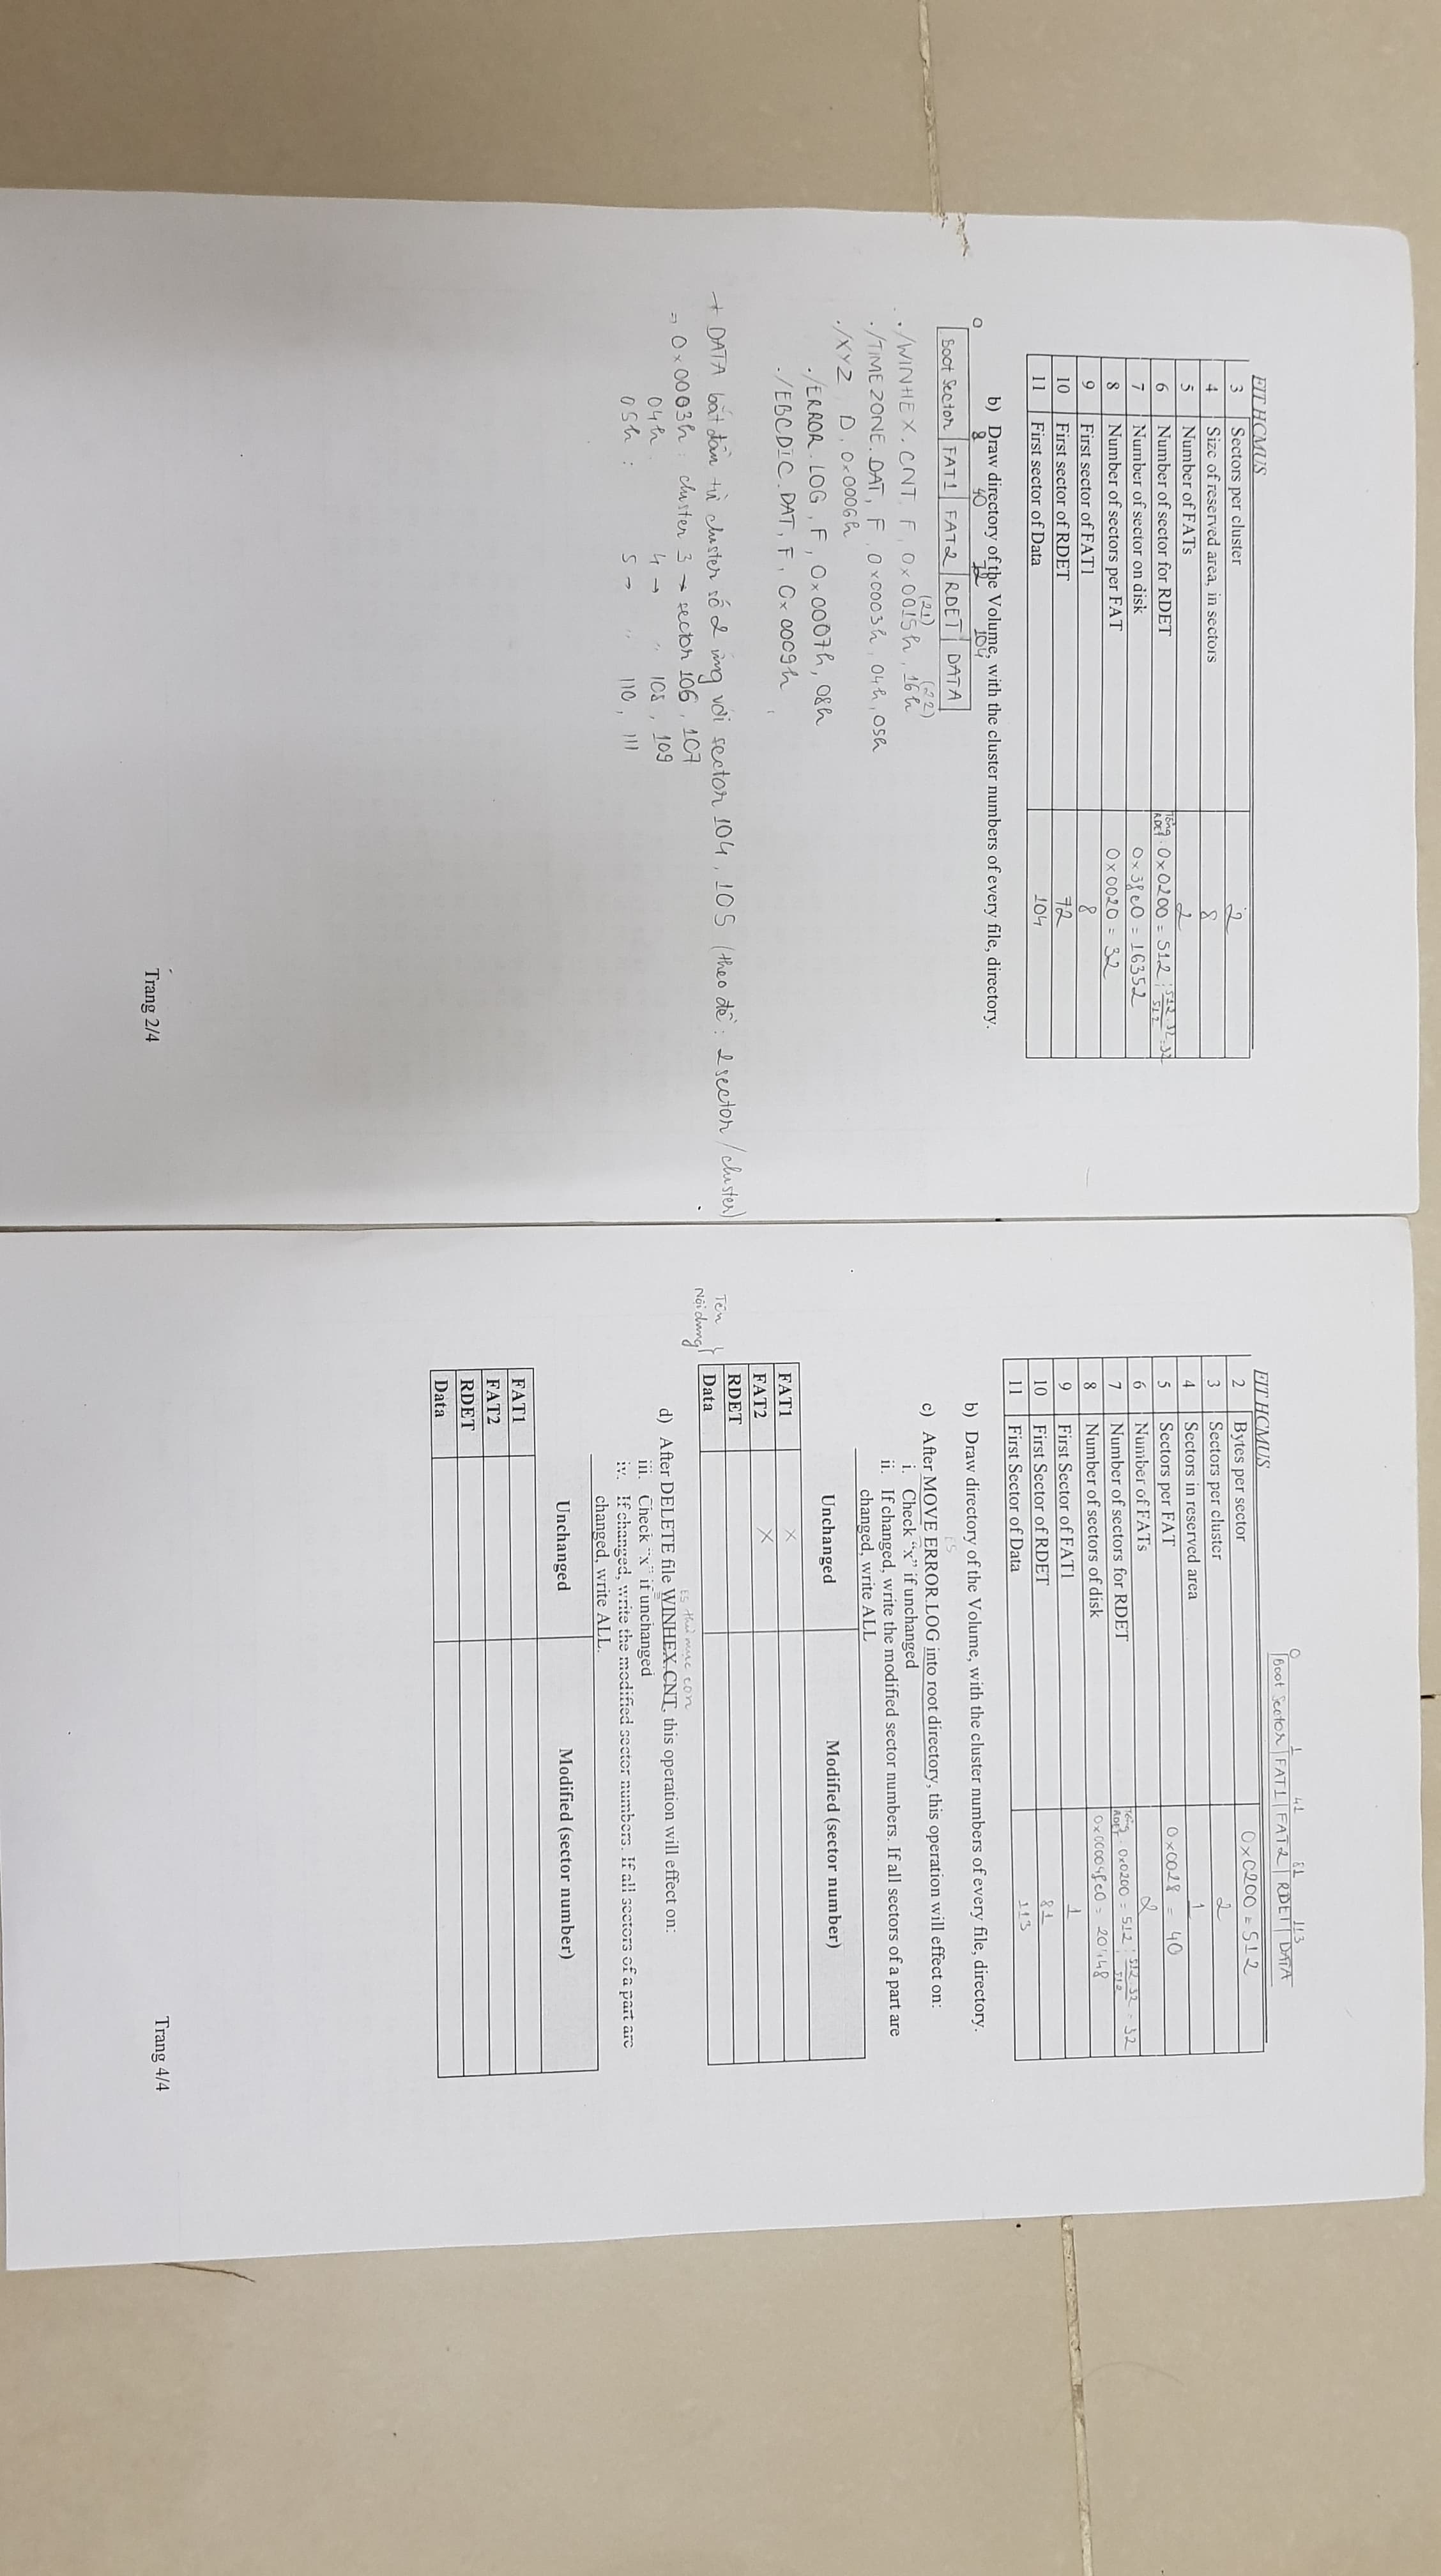 FIT HCMUS
3 Sectors per cluster 2
4 Size of reserved area, in sectors 8
5 Number of FATs 2
6 Number of sector for RDET Tổng RDET: 0x0200 = 512 ; 512.32 / 512 = 32
7 Number of sector on disk 0x3fe0 = 16352
8 Number of sectors per FAT 0x0020 = 32
9 First sector of FAT1 8
10 First sector of RDET 72
11 First sector of Data 104
b) Draw directory of the Volume, with the cluster numbers of every file, directory.
0 8 40 72 104
Boot Sector FAT1 FAT2 RDET DATA
(21) (22)
./WINHEX.CNT, F, 0x0015h, 16h
./TIMEZONE.DAT, F, 0x0003h, 04h, 05h
./XYZ D, 0x0006h
./ERROR.LOG, F, 0x0007h, 08h
./EBCDIC.DAT, F, 0x0009h
+ DATA bắt đầu từ cluster số 2 ứng với sector 104, 105 (theo đề: 2 sector/cluster)
⇒ 0x0003h: cluster 3 → sector 106, 107
04h 4 → " 108, 109
05h: 5 → " 110, 111
Trang 2/4
0 1 41 81 113
Boot Sector FAT1 FAT2 RDET DATA
FIT HCMUS
2 Bytes per sector 0x0200 = 512
3 Sectors per cluster 2
4 Sectors in reserved area 1
5 Sectors per FAT 0x0028 = 40
6 Number of FATs 2
7 Number of sectors for RDET Tổng RDET: 0x0200 = 512 ; 512.32 / 512 = 32
8 Number of sectors of disk 0x00004fe0 =
9 First Sector of FAT1 1
10 First Sector of RDET 81
11 First Sector of Data 113
b) Draw directory of the Volume, with the cluster numbers of every file, directory.
ES
c) After MOVE ERROR.LOG into root directory, this operation will effect on:
i. Check “x” if unchanged
ii. If changed, write the modified sector numbers. If all sectors of a part are
changed, write ALL
Unchanged Modified (sector number)
FAT1 x
FAT2 x
RDET
Data
Tên
Nội dung
ES thư mục con
d) After DELETE file WINHEX.CNT, this operation will effect on:
iii. Check “x” if unchanged
iv. If changed, write the modified sector numbers. If all sectors of a part are
changed, write ALL.
Unchanged Modified (sector number)
FAT1
FAT2
RDET
Data
Trang 4/4